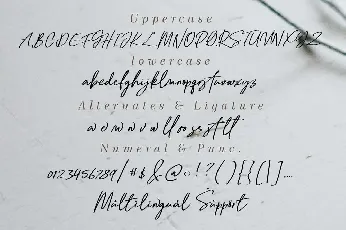 Uppercase
ABCDEFGHIJKLMNOPQRSTUVWXYZ
lowercase
abcdefghijklmnopqrstuvwxyz
Alternates & Ligature
Numeral & Punc.
0123456789/#$&@!?(){}[]
Multilingual Support